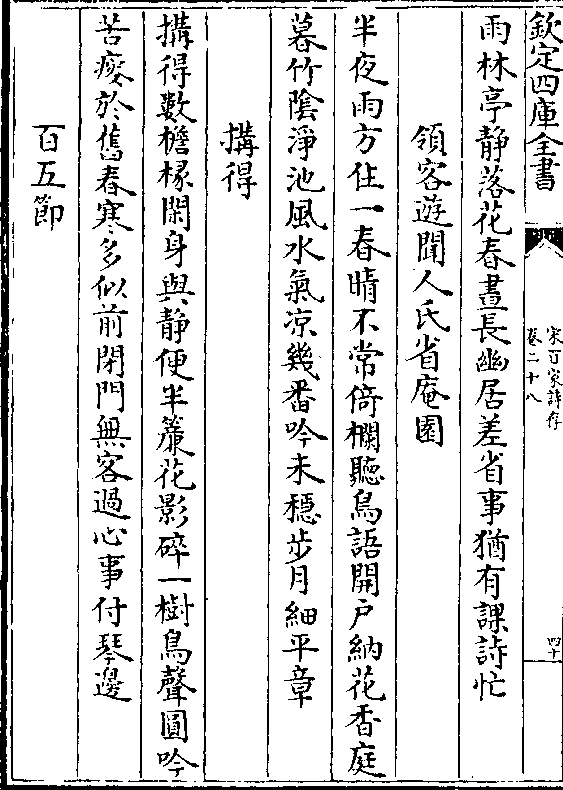 欽定四庫全書
宋百家詩存
卷二十八
四十
雨林亭静落花春晝長幽居差省事猶有課詩忙
領客遊聞人氏省庵園
半夜雨方住一春晴不常倚欄聽鳥語開戶納花香庭
暮竹陰淨池風水氣凉幾番吟未穩步月細平章
搆得
搆得數檐椽閑身與静便半簾花影碎一樹鳥聲圓吟
苦瘦於舊春寒多似前閉門無客過心事付琴邊
百五節